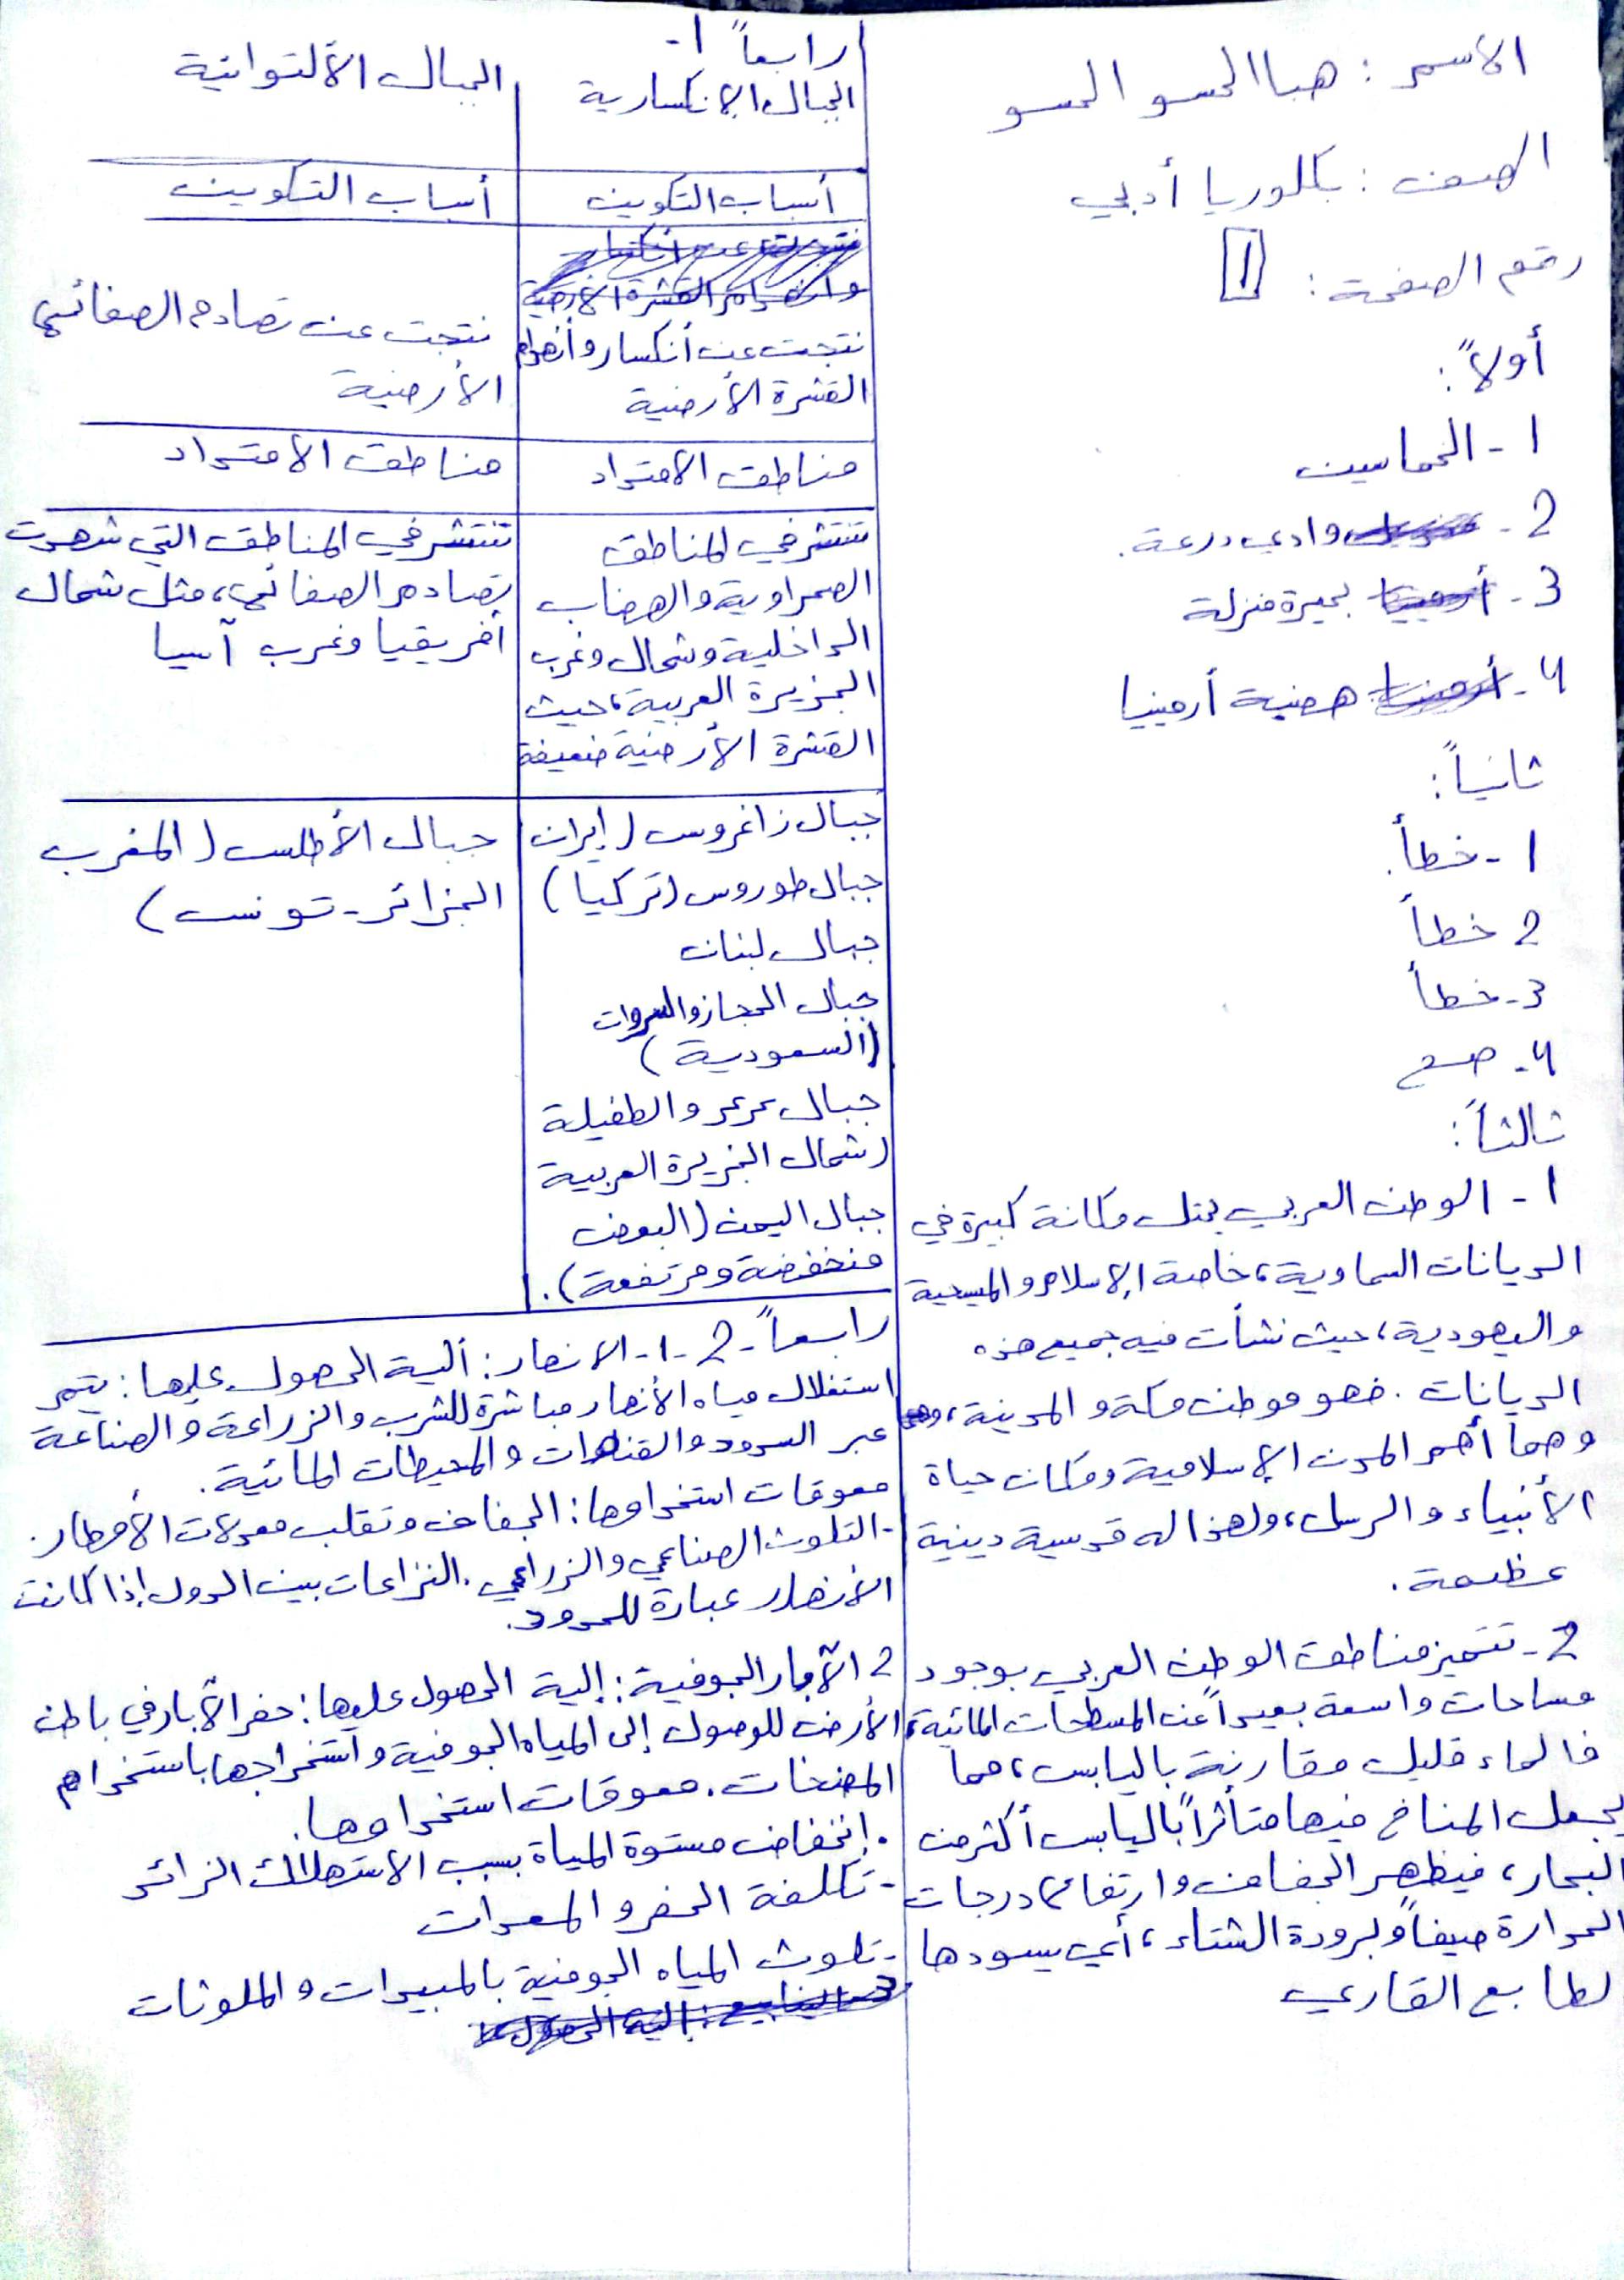 الاسم : هبا الحسو الحسو
الصف : بكلوريا أدبي
رقم الصفحة : 1
أولاً :
1 - الخماسين
2 - وادي درعة .
3 - بحيرة منزلة
4 - هضبة أرمينيا
ثانياً :
1 - خطأ .
2 خطأ
3 - خطأ
4 - صح
ثالثاً :
1 - الوطن العربي يحتل مكانة كبيرة في
الديانات السماوية ، خاصة الإسلام والمسيحية
واليهودية ، حيث نشأت فيه جميع هذه
الديانات . فهو موطن مكة والمدينة ،
وهما أهم المدن الإسلامية ومكان حياة
الأنبياء والرسل ، ولهذا له قدسية دينية
عظيمة .
2 - تتميز مناطق الوطن العربي بوجود
مساحات واسعة بعيداً عن المسطحات المائية ،
فالماء قليل مقارنة باليابس ، مما
يجعل المناخ فيها متأثراً باليابس أكثر من
البحار ، فيظهر الجفاف وارتفاع درجات
الحرارة صيفاً وبرودة الشتاء ، أي يسودها
لطابع القاري
رابعاً 1 -
الجبال الإنكسارية
الجبال الألتوائية
أسباب التكوين
أسباب التكوين
نتجت عن أنكسار وأنهدام
القشرة الأرضية
نتجت عن تصادم الصفائح
الأرضية
مناطق الامتداد
مناطق الامتداد
تنتشر في المناطق
الصحراوية والهضاب
الداخلية وشمال وغرب
الجزيرة العربية ، حيث
القشرة الأرضية ضعيفة
تنتشر في المناطق التي شهدت
تصادم الصفائح ، مثل شمال
أفريقيا وغرب آسيا
جبال زاغروس ( إيران
جبال طوروس ( تركيا )
جبال لبنان
جبال الحجاز والسروات
( السعودية )
جبال عرعر والطفيلة
( شمال الجزيرة العربية
جبال اليمن ( البعض
منخفضة ومرتفعة ) .
جبال الأطلس ( المغرب
الجزائر - تونس )
رابعاً - 2 - 1 - الانهار : ألية الحصول عليها : يتم
استغلال مياه الأنهار مباشرة للشرب والزراعة والصناعة
عبر السدود والقنوات والمحيطات المائية .
معوقات استخدامها : الجفاف وتقلب معدلات الأمطار .
- التلوث الصناعي والزراعي . النزاعات بين الدول إذا كانت
الأنهار عبارة للحدود .
2 الآبار الجوفية : إلية الحصول عليها : حفر الآبار في باطن
الأرض للوصول إلى المياه الجوفية واستخراجها باستخدام
المضخات . معوقات استخدامها .
. إنخفاض مستوة المياة بسبب الاستهلاك الزائد
- تكلفة الحفر والمعدات
- تلوث المياه الجوفية بالمبيدات والملوثات